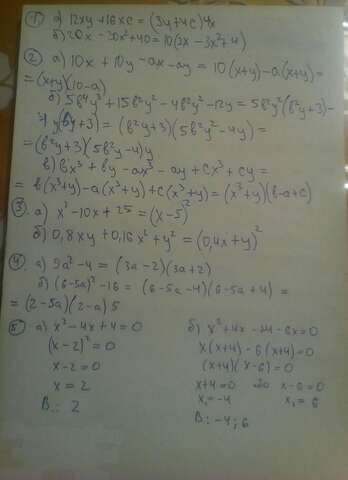 ① а) 12xy + 16xc = (3y+4c)4x
б) 20x - 30x²+40 = 10(2x - 3x²+4)
② а) 10x + 10y - ax - ay = 10(x+y) - a(x+y) =
= (x+y)(10-a)
б) 5b⁴y³ + 15b²y² - 4b²y² - 12y = 5b²y²(b²y+3) -
y(by+3) = (b²y+3)(5b²y² - 4y) =
= (b²y+3)(5b²y - 4)y
в) bx³ + by - ax³ - ay + cx³ + cy =
= b(x³+y) - a(x³+y) + c(x³+y) = (x³+y)(b-a+c)
③ а) x² - 10x + 25 = (x-5)²
б) 0,8xy + 0,16x² + y² = (0,4x + y)²
④ а) 9a² - 4 = (3a - 2)(3a + 2)
б) (6-5a)² - 16 = (6-5a-4)(6-5a+4) =
= (2-5a)(2-a)5
⑤ а) x² - 4x + 4 = 0
(x-2)² = 0
x - 2 = 0
x = 2
В.: 2
б) x² + 4x - 24 - 6x = 0
x(x+4) - 6(x+4) = 0
(x+4)(x-6) = 0
x+4=0 або x-6=0
x₁=-4 x₁=6
В: -4; 6